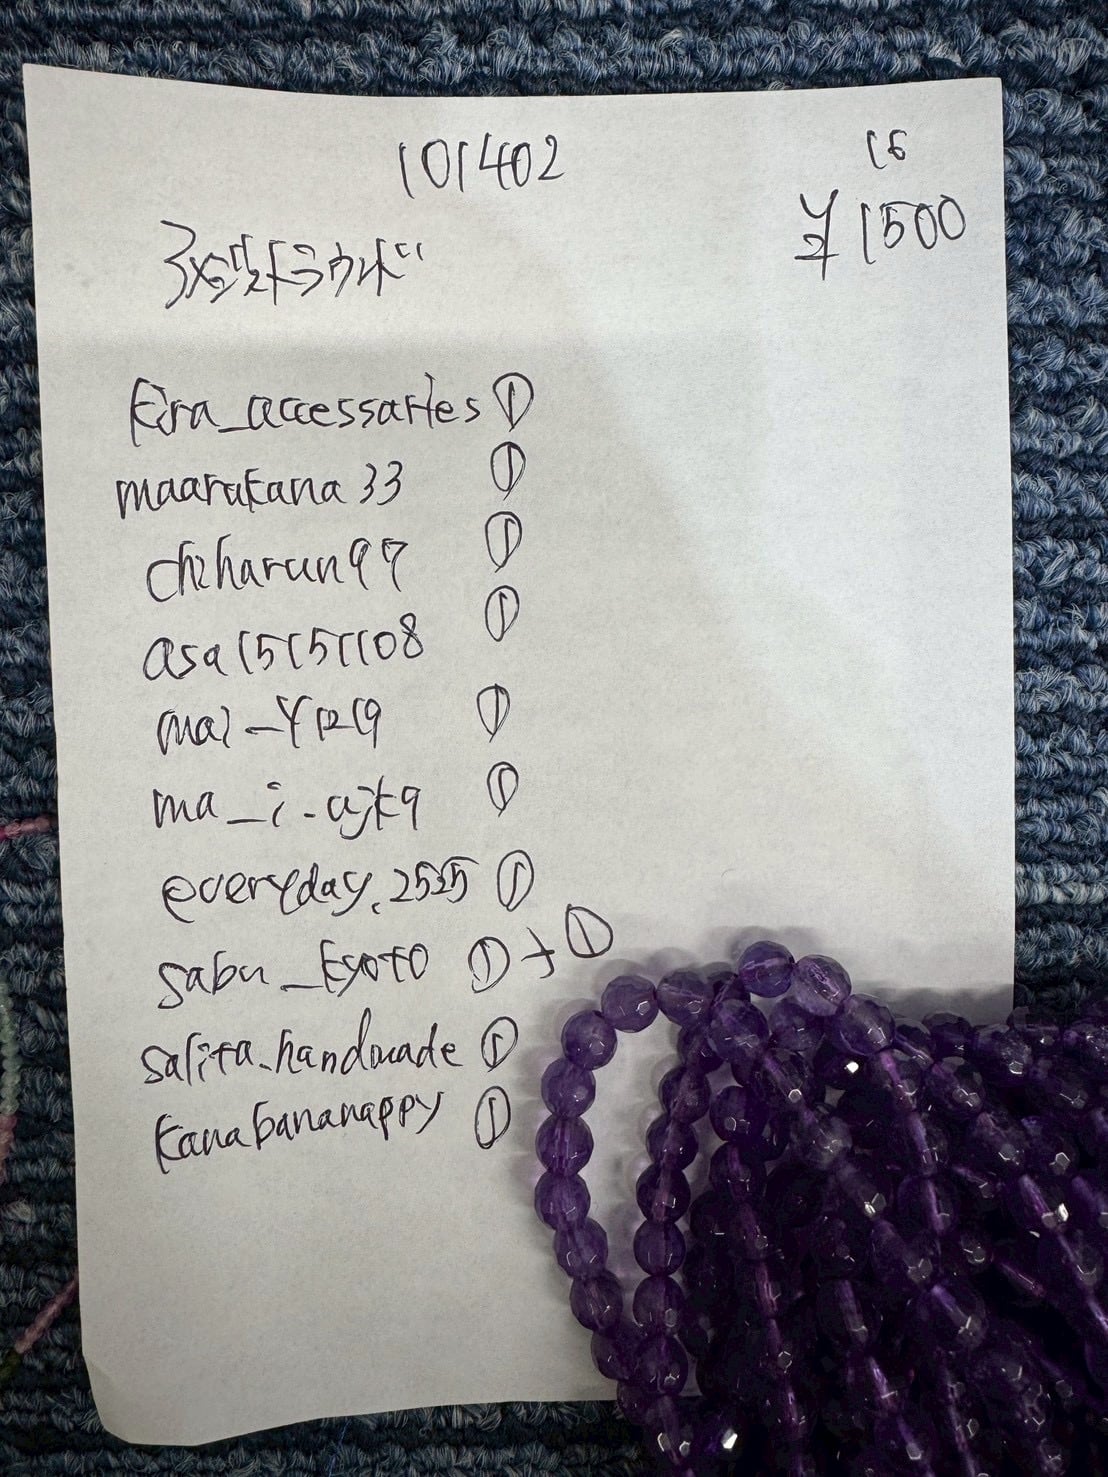 101402
16
¥1500
アメジストラウンド
kira_accessaries ①
maarukana33 ①
chiharun97 ①
asa15151108 ①
mai_y1219 ①
ma_i._ajk9 ①
everyday.2525 ①
sabu_kyoto ①+①
salita_handmade ①
kanabananappy ①